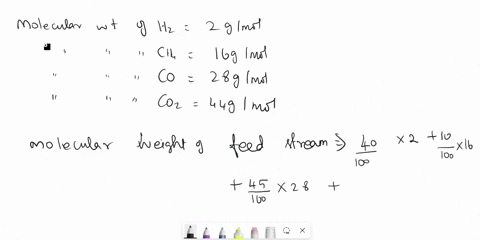 Molecular wt of H₂ = 2 g/mol
" " " CH₄ = 16g/mol
" " " CO = 28g/mol
" " " CO₂ = 44g/mol
molecular weight of feed stream ⇒ 40/100 × 2 + 10/100 × 16
+ 45/100 × 28 +